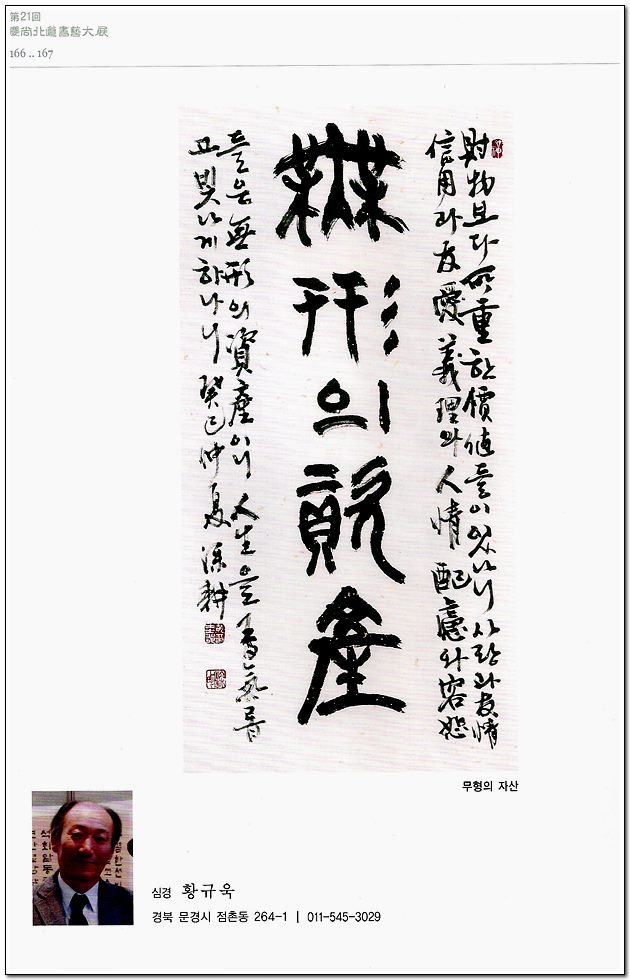 第21回
慶尙北道書藝大展
166 .. 167
財物보다 所重한 價値들이 있나니 사랑과 友情
信用과 友愛 義理와 人情 配慮와 容恕
無形의 資產
들은 無形의 資產이니 人生을
고 빛나게 하나니 癸巳仲夏 深耕
무형의 자산
심경 황규욱
경북 문경시 점촌동 264-1 | 011-545-3029